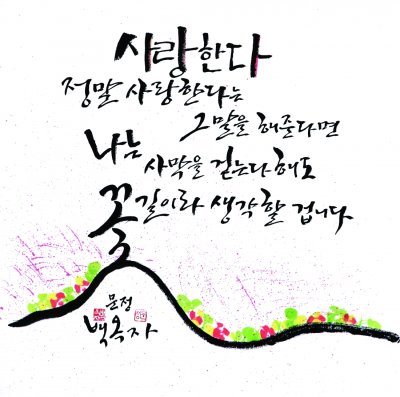 사랑한다
정말 사랑한다는
그말을 해준다면
나는
사막을 걷는다해도
꽃길이라 생각할 겁니다
문정
백옥자